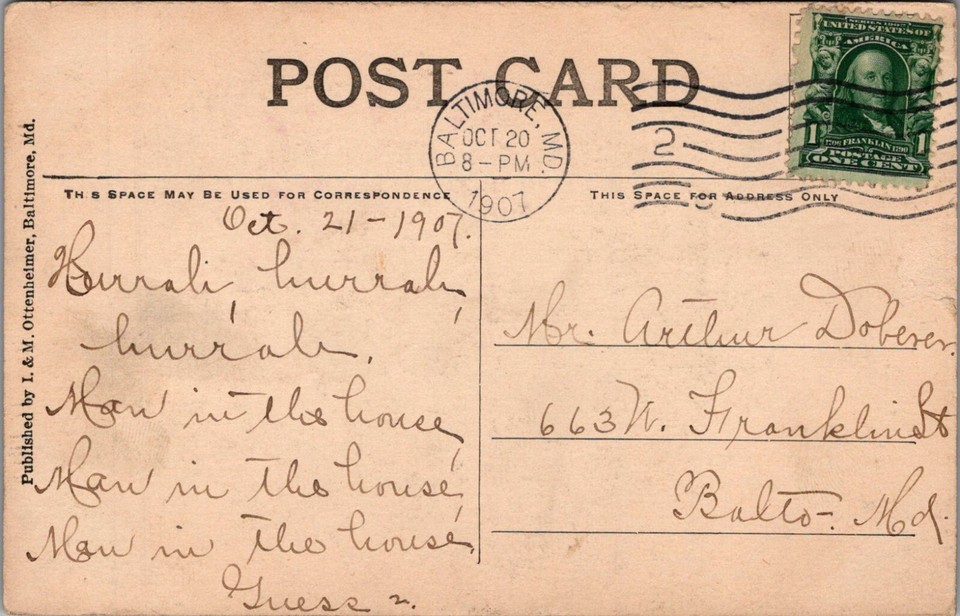 POST CARD
BALTIMORE, MD.
OCT 20
8-PM
1907
2
SERIES 1902
UNITED STATES OF
AMERICA
1 1
1706 FRANKLIN 1790
POSTAGE
ONE CENT
Published by I. & M. Ottenheimer, Baltimore, Md.
THIS SPACE MAY BE USED FOR CORRESPONDENCE
THIS SPACE FOR ADDRESS ONLY
Oct. 21-1907.
Hurrah, hurrah,
hurrah,
Man in the house,
Man in the house,
Man in the house.
Guess
Mr. Arthur Doberer.
663 W. Franklin St
Balto. Md.